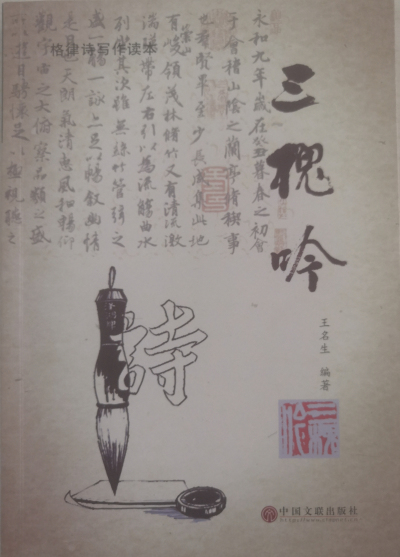 格律诗写作读本
三槐吟
王名生 编著
永和九年歲在癸丑暮春之初會
于會稽山陰之蘭亭脩稧事
也羣賢畢至少長咸集此地
有崇山峻領茂林脩竹又有清流激
湍暎帶左右引以為流觴曲水
列坐其次雖無絲竹管弦之
盛一觴一詠亦足以暢敘幽情
是日也天朗氣清惠風和暢仰
觀宇宙之大俯察品類之盛
所以遊目騁懷足以極視聽之
詩
中国文联出版社